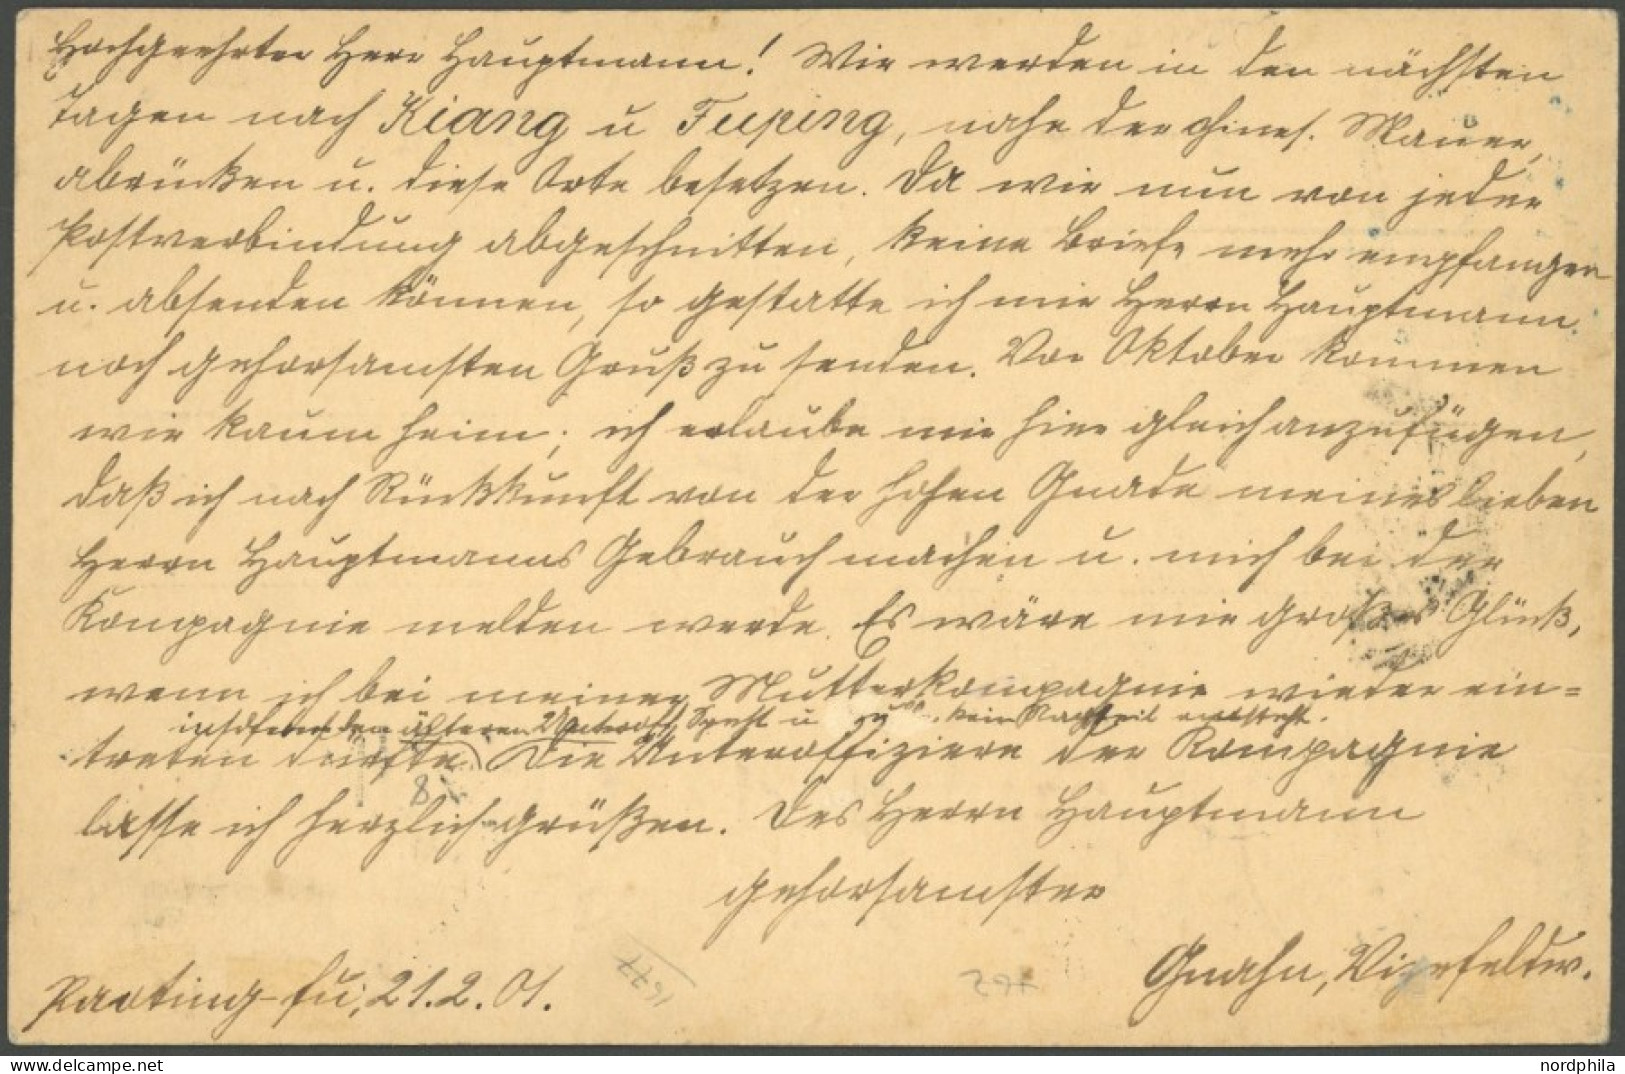 Hochgeehrter Herr Hauptmann! Wir werden in den nächsten
Tagen nach Kiang u Fuping, nahe der chines. Mauer,
abrücken u. diese Orte besetzen. Da wir nun von jeder
Postverbindung abgeschnitten, keine Briefe mehr empfangen
u. absenden können, so gestatte ich mir Herrn Hauptmann
noch gehorsamsten Gruß zu senden. Vor Oktober kommen
wir kaum heim; ich erlaube mir hier gleich anzufügen,
daß ich nach Rückkunft von der hohen Gnade meines lieben
Herrn Hauptmanns Gebrauch machen u. mich bei der
Kompagnie melden werde. Es wäre mir großes Glück,
wenn ich bei meiner Mutterkompagnie wieder ein=
insofern den älteren Unteroff. u kein Nachteil entsteht.
treten dürfte. Die Unteroffiziere der Kompagnie
lasse ich herzlich grüßen. Des Herrn Hauptmann
gehorsamster
Gnahn, Vizefeldw.
Paoting-fu, 21.2.01.
1677
8
nordphila